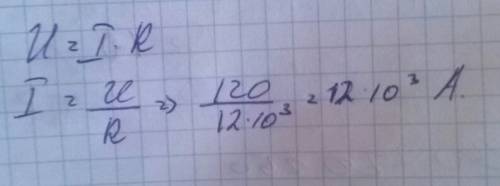 U = I · R
I = U/R => 120/12·10³ = 12·10³ A.